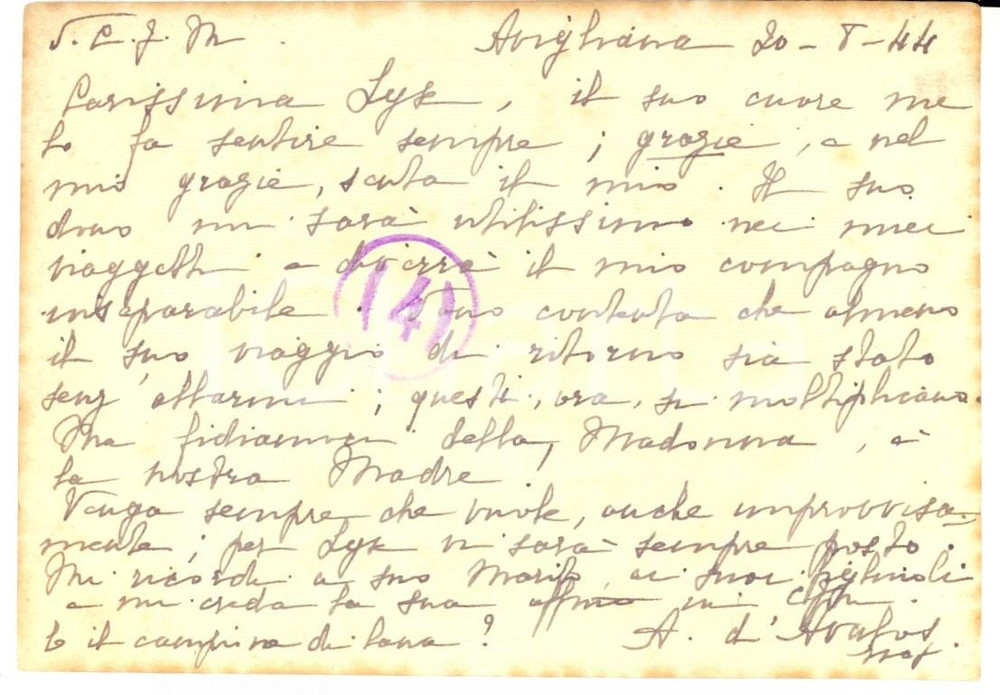 Avigliana 20-8-44
Carissima Lyk, il suo cuore me
lo fa sentire sempre; grazie, e nel
mio grazie, senta il mio. Il suo
dono mi sarà utilissimo nei miei
viaggetti e diverrà il mio compagno
inseparabile. Sono contenta che almeno
(14)
il suo viaggio di ritorno sia stato
senz'allarmi; questi, ora, si moltiplicano.
Ma fidiamoci della Madonna, è
la nostra Madre.
Venga sempre che vuole, anche improvvisa-
mente; per Lyk vi sarà sempre posto.
Mi ricordi a suo Marito, ai suoi figliuoli
e mi creda la sua affma in
E il campione di lana? A. d'Avalos